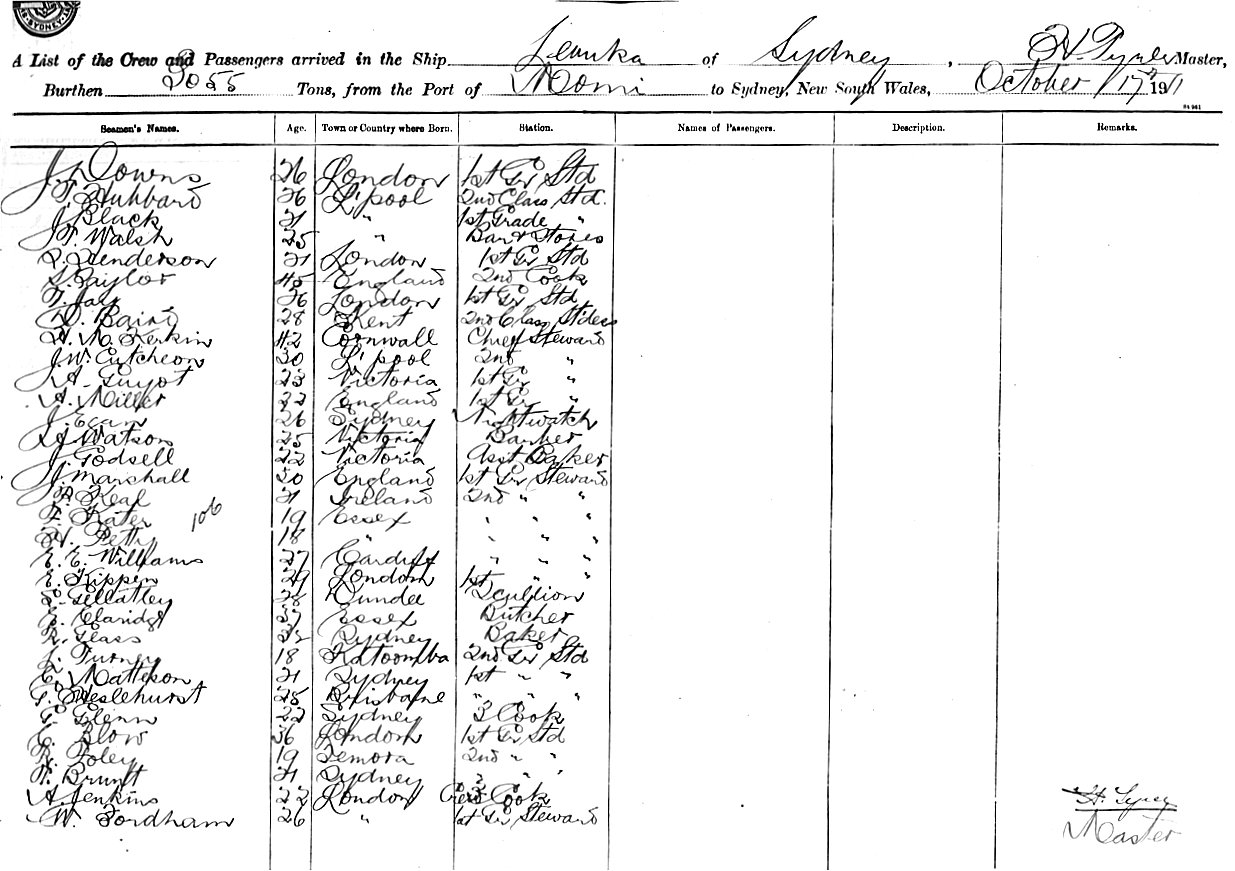 SYDNEY
A List of the Crew and Passengers arrived in the Ship Levuka of Sydney, H. Master,
Burthen 3055 Tons, from the Port of Momi to Sydney, New South Wales, October 17th 1911
Seamen's Names. Age. Town or Country where Born. Station. Names of Passengers. Description. Remarks.
J. Downs 26 London 1st Gr Std
T. Hubbard 26 L'pool 2nd Class Std.
J. Black 21 " 1st Grade "
J. F. Walsh 25 " Bar & Stores
Henderson 21 London 1st Gr Std
S. Taylor 45 England 2nd Cook
F. Jay 26 London 1st Gr Std
D. Baird 28 Kent 2nd Class
42 Cornwall Chief Steward
J. W. Cutcheon 30 L'pool 2nd "
A. Guyot 23 Victoria 1st Gr "
A. Miller 22 England 1st Gr "
J. Egan 26 Sydney Nightwatch
Watson 25 Victoria Barber
J. Godsell 22 Victoria Asst Baker
J. Marshall 30 England 1st Gr Steward
Keal 21 Ireland 2nd " "
F. Kater 106 19 Essex " " "
H. Petty 18 " " " "
E. E. Williams 27 Cardiff " " "
E. Kippen 29 London 1st " "
Gellatley 28 Dundee Scullion
E. Claridge 37 Essex Butcher
R. Glass Sydney Baker
J. Turney 18 Katoomba 2nd Gr Std
C. Mattison 21 Sydney 1st " "
G. Heslehurst 25 Brisbane " " "
G. Glenn 22 Sydney 3 Cook
C. Blow 36 London 1st Gr Std
R. Foley 19 Temora 2nd " "
F. Brunt 21 Sydney 2 " "
A. Jenkins 22 London Crew Cook
W. Fordham 26 " 1st Gr Steward
Master